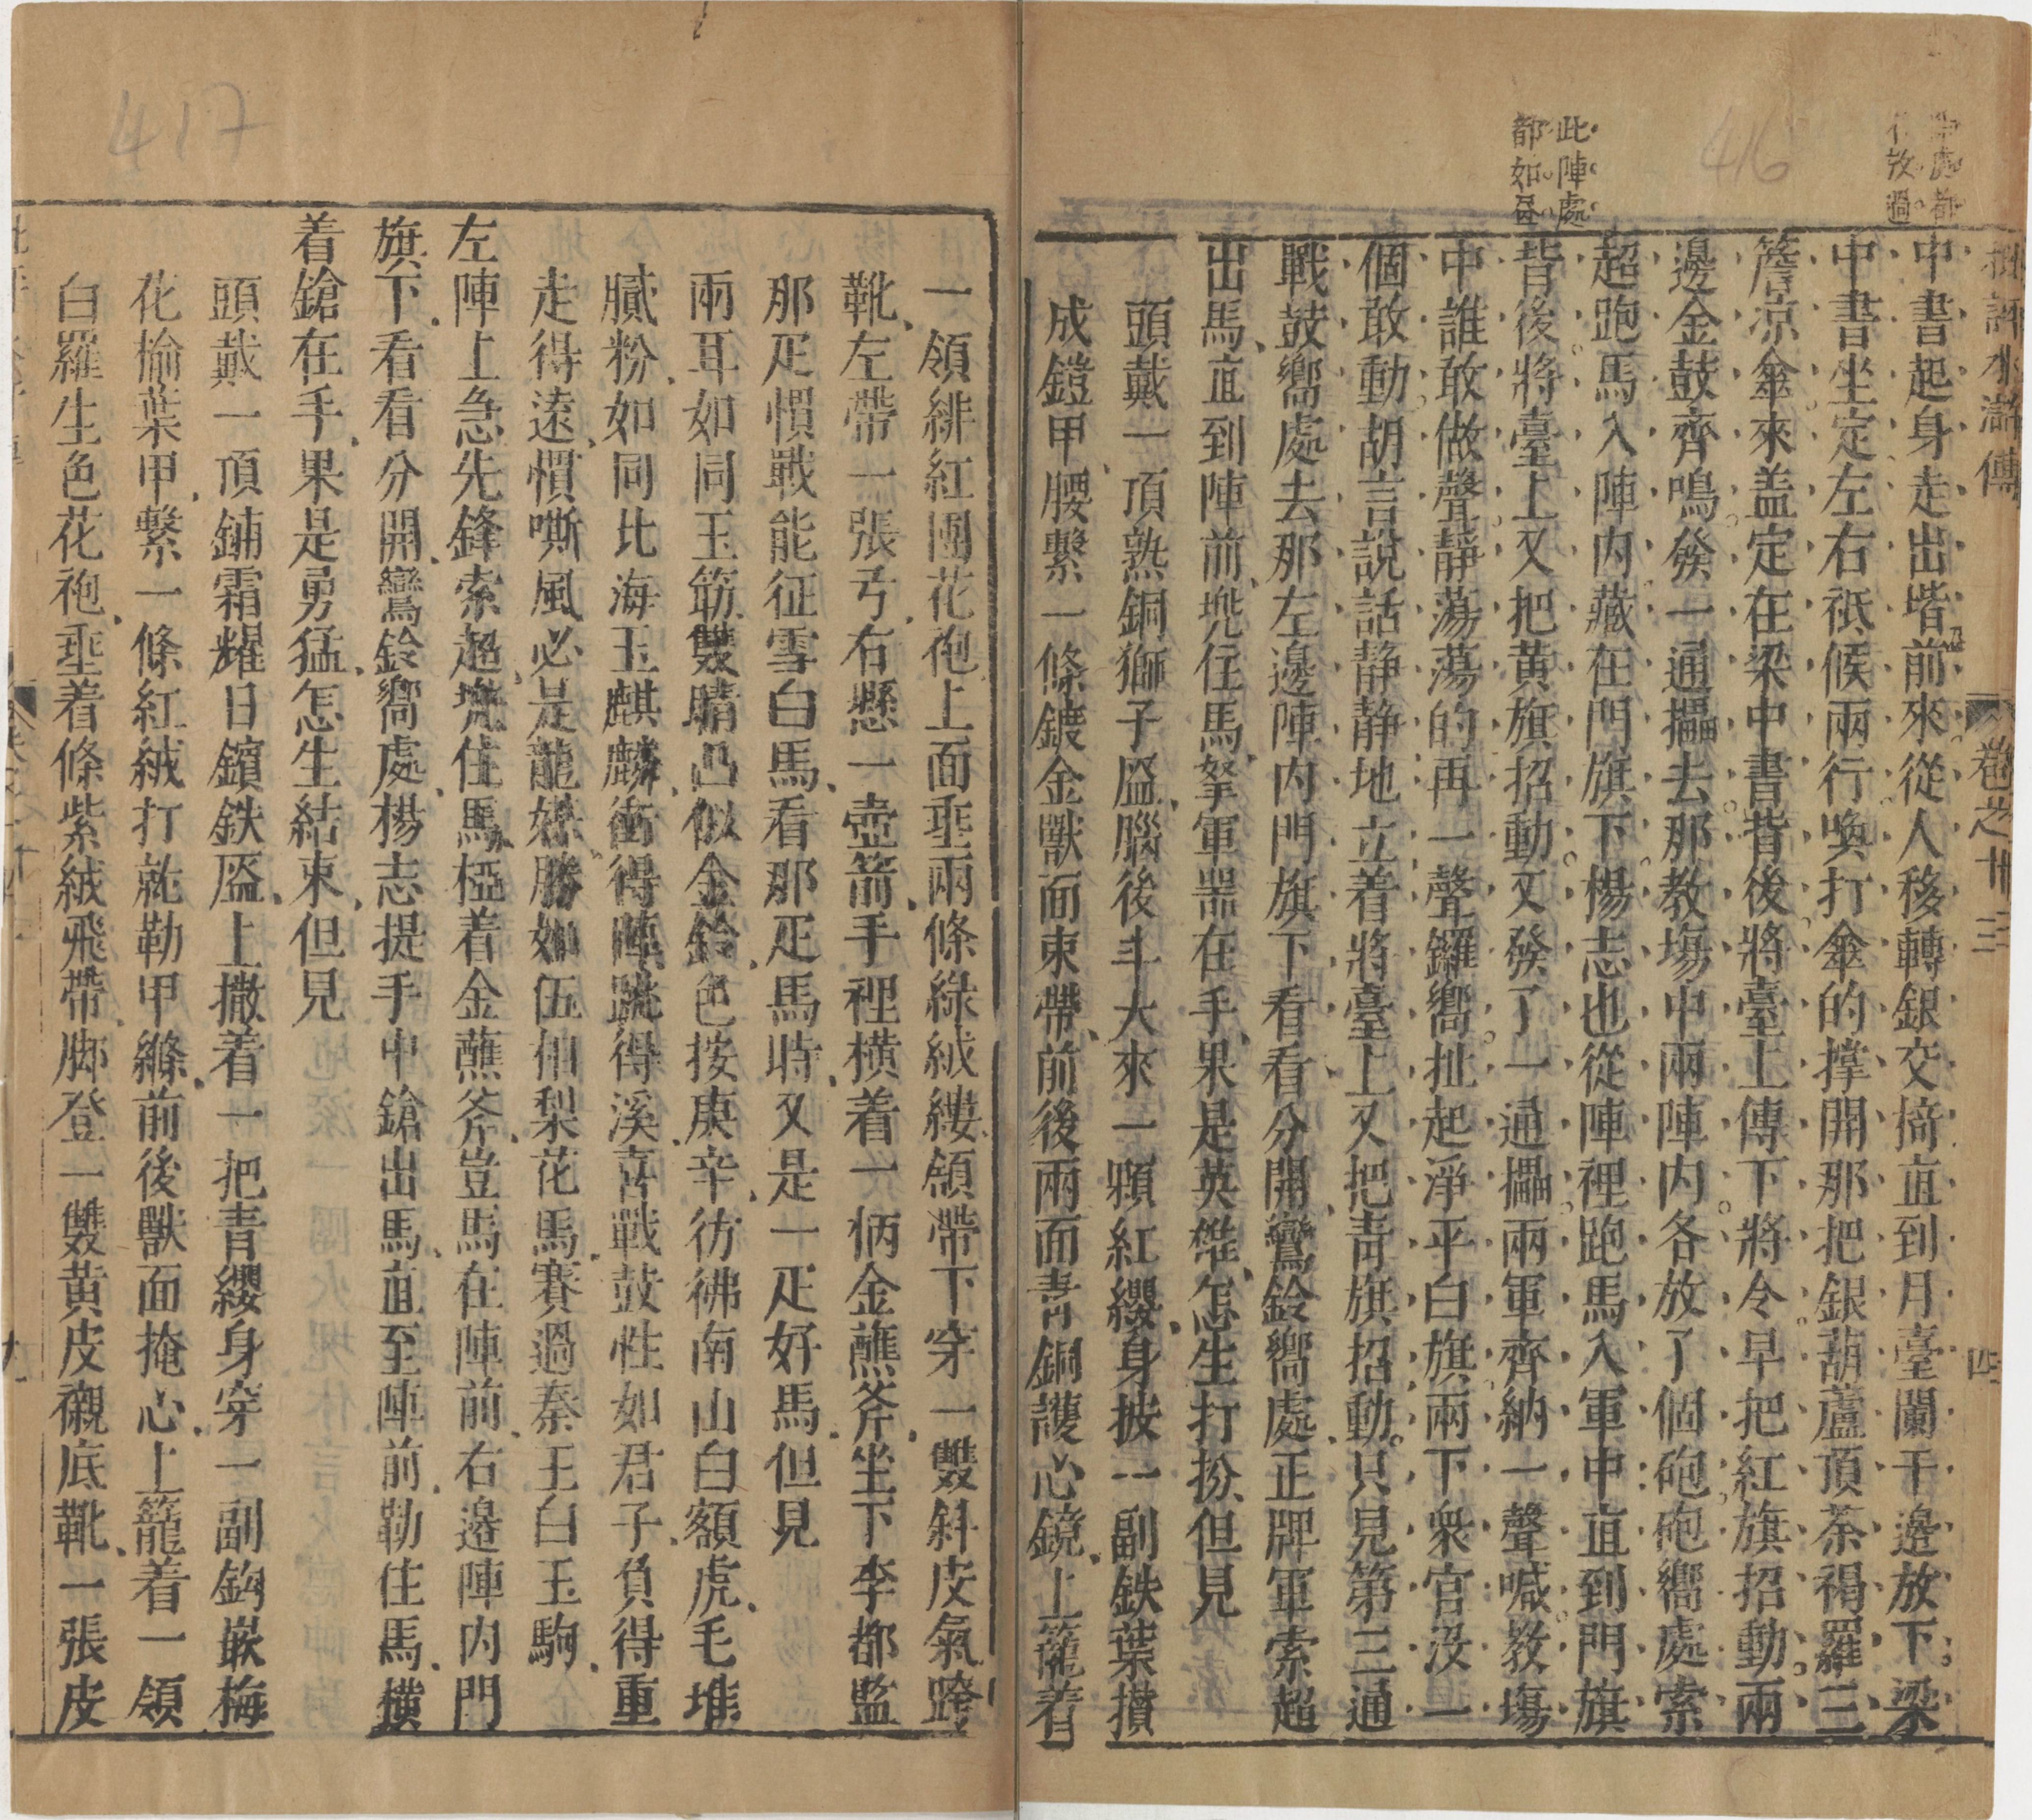 批評水滸傳
卷之十三
四
都
放過
此陣處
都如
416
中書起身走出堦前來從人移轉銀交椅直到月臺闌干邊放下梁
中書坐定左右祗候兩行喚打傘的撑開那把銀葫蘆頂茶褐羅三
簷凉傘來盖定在梁中書背後將臺上傳下將令早把紅旗招動兩
邊金鼓齊鳴發一通擂去那教塲中兩陣内各放了個砲砲嚮處索
超跑馬入陣内藏在門旗下楊志也從陣裡跑馬入軍中直到門旗
背後將臺上又把黄旗招動又發了一通擂兩軍齊納一聲喊教塲
中誰敢做聲靜蕩蕩的再一聲鑼嚮扯起淨平白旗兩下衆官没一
個敢動胡言說話静静地立着將臺上又把青旗招動只見第三通
戰鼓嚮處去那左邊陣内門旗下看看分開鸞鈴嚮處正牌軍索超
出馬直到陣前兠住馬拏軍噐在手果是英雄怎生打扮但見
頭戴一頂熟銅獅子盔腦後斗大來一顆紅纓身披一副鉄葉攅
成鎧甲腰繫一條鍍金獸面束帶前後兩面青銅護心鏡上籠着
417
一領緋紅團花袍上面垂兩條綠絨縷領帶下穿一雙斜皮氣跨
靴左帶一張弓右懸一壺箭手裡橫着一柄金蘸斧坐下李都監
那疋慣戰能征雪白馬看那疋馬時又是一疋好馬但見
兩耳如同玉筯雙睛凸似金鈴色按庚辛彷彿南山白額虎毛堆
膩粉如同比海玉麒麟衝得陣跳得溪喜戰鼓性如君子負得重
走得遠慣嘶風必是龍媒勝如伍相梨花馬賽過秦王白玉駒
左陣上急先鋒索超兠住馬掗着金蘸斧豈馬在陣前右邊陣内門
旗下看看分開鸞鈴嚮處楊志提手中鎗出馬直至陣前勒住馬橫
着鎗在手果是勇猛怎生結束但見
頭戴一頂鋪霜耀日鑌鉄盔上撒着一把青纓身穿一副鈎嵌梅
花榆葉甲繫一條紅絨打就勒甲縧前後獸面掩心上籠着一領
白羅生色花袍垂着條紫絨飛帶脚登一雙黄皮襯底靴一張皮